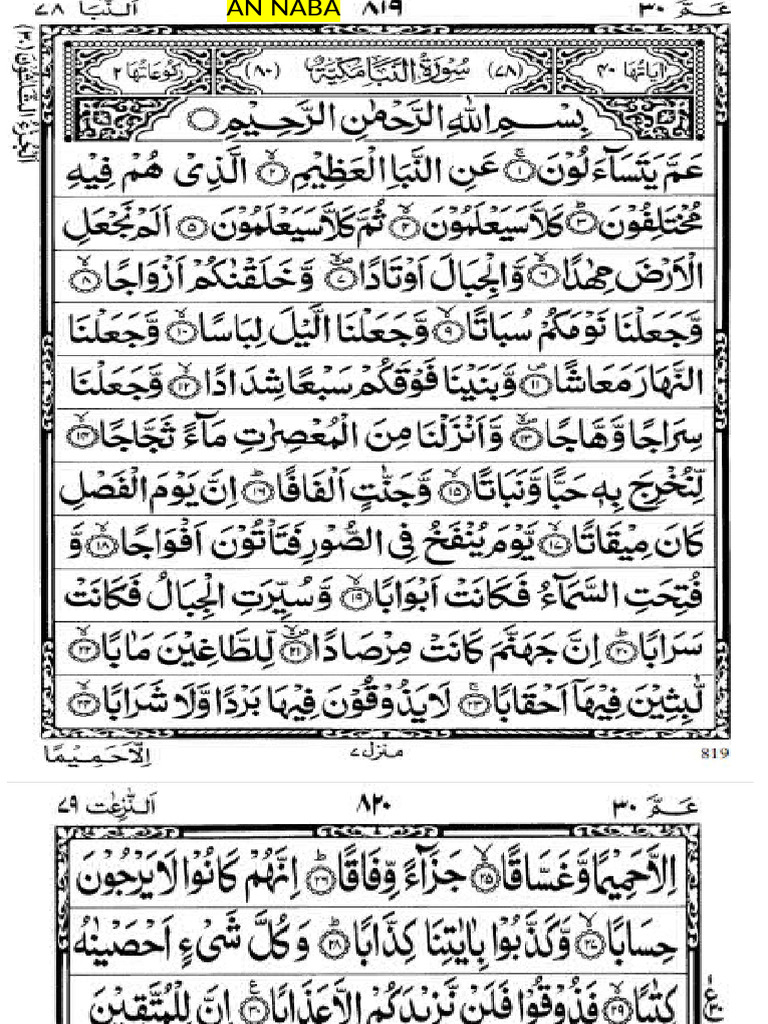 عـمّ ٣٠ ٨١٩ AN NABA النّبا ٧٨
اٰیاتها ٤٠ (٧٨) سُوْرَةُ النَّبَاِ مَكِّيَّةٌ (٨٠) ركوعاتها ٢
بِسْمِ اللّٰهِ الرَّحْمٰنِ الرَّحِيْمِ
عَمَّ يَتَسَآءَلُوْنَ ۚ﴿١﴾ عَنِ النَّبَاِ الْعَظِيْمِ ۙ﴿٢﴾ الَّذِىْ هُمْ فِيْهِ
مُخْتَلِفُوْنَ ؕ﴿٣﴾ كَلَّا سَيَعْلَمُوْنَ ۙ﴿٤﴾ ثُمَّ كَلَّا سَيَعْلَمُوْنَ ﴿٥﴾ اَلَمْ نَجْعَلِ
الْاَرْضَ مِهٰدًا ۙ﴿٦﴾ وَّالْجِبَالَ اَوْتَادًا ۪ۙ﴿٧﴾ وَّخَلَقْنٰكُمْ اَزْوَاجًا ۙ﴿٨﴾
وَّجَعَلْنَا نَوْمَكُمْ سُبَاتًا ۙ﴿٩﴾ وَّجَعَلْنَا الَّيْلَ لِبَاسًا ۙ﴿١٠﴾ وَّجَعَلْنَا
النَّهَارَ مَعَاشًا ۪﴿١١﴾ وَّبَنَيْنَا فَوْقَكُمْ سَبْعًا شِدَادًا ۙ﴿١٢﴾ وَّجَعَلْنَا
سِرَاجًا وَّهَّاجًا ۪ۙ﴿١٣﴾ وَّاَنْزَلْنَا مِنَ الْمُعْصِرٰتِ مَآءً ثَجَّاجًا ۙ﴿١٤﴾
لِّنُخْرِجَ بِهٖ حَبًّا وَّنَبَاتًا ۙ﴿١٥﴾ وَّجَنّٰتٍ اَلْفَافًا ؕ﴿١٦﴾ اِنَّ يَوْمَ الْفَصْلِ
كَانَ مِيْقَاتًا ۙ﴿١٧﴾ يَّوْمَ يُنْفَخُ فِى الصُّوْرِ فَتَاْتُوْنَ اَفْوَاجًا ۙ﴿١٨﴾ وَّ
فُتِحَتِ السَّمَآءُ فَكَانَتْ اَبْوَابًا ۙ﴿١٩﴾ وَّسُيِّرَتِ الْجِبَالُ فَكَانَتْ
سَرَابًا ؕ﴿٢٠﴾ اِنَّ جَهَنَّمَ كَانَتْ مِرْصَادًا ۪ۙ﴿٢١﴾ لِّلطَّاغِيْنَ مَاٰبًا ۙ﴿٢٢﴾
لّٰبِثِيْنَ فِيْهَاۤ اَحْقَابًا ۚ﴿٢٣﴾ لَا يَذُوْقُوْنَ فِيْهَا بَرْدًا وَّلَا شَرَابًا ۙ﴿٢٤﴾
819 منزل ٧ اِلَّا حَمِيْمًا
عـمّ ٣٠ ٨٢٠ النّٰزعٰت ٧٩
اِلَّا حَمِيْمًا وَّغَسَّاقًا ۙ﴿٢٥﴾ جَزَآءً وِّفَاقًا ؕ﴿٢٦﴾ اِنَّهُمْ كَانُوْا لَا يَرْجُوْنَ
حِسَابًا ۙ﴿٢٧﴾ وَّكَذَّبُوْا بِاٰيٰتِنَا كِذَّابًا ؕ﴿٢٨﴾ وَكُلَّ شَىْءٍ اَحْصَيْنٰهُ
كِتٰبًا ۙ﴿٢٩﴾ فَذُوْقُوْا فَلَنْ نَّزِيْدَكُمْ اِلَّا عَذَابًا ﴿٣٠﴾ اِنَّ لِلْمُتَّقِيْنَ